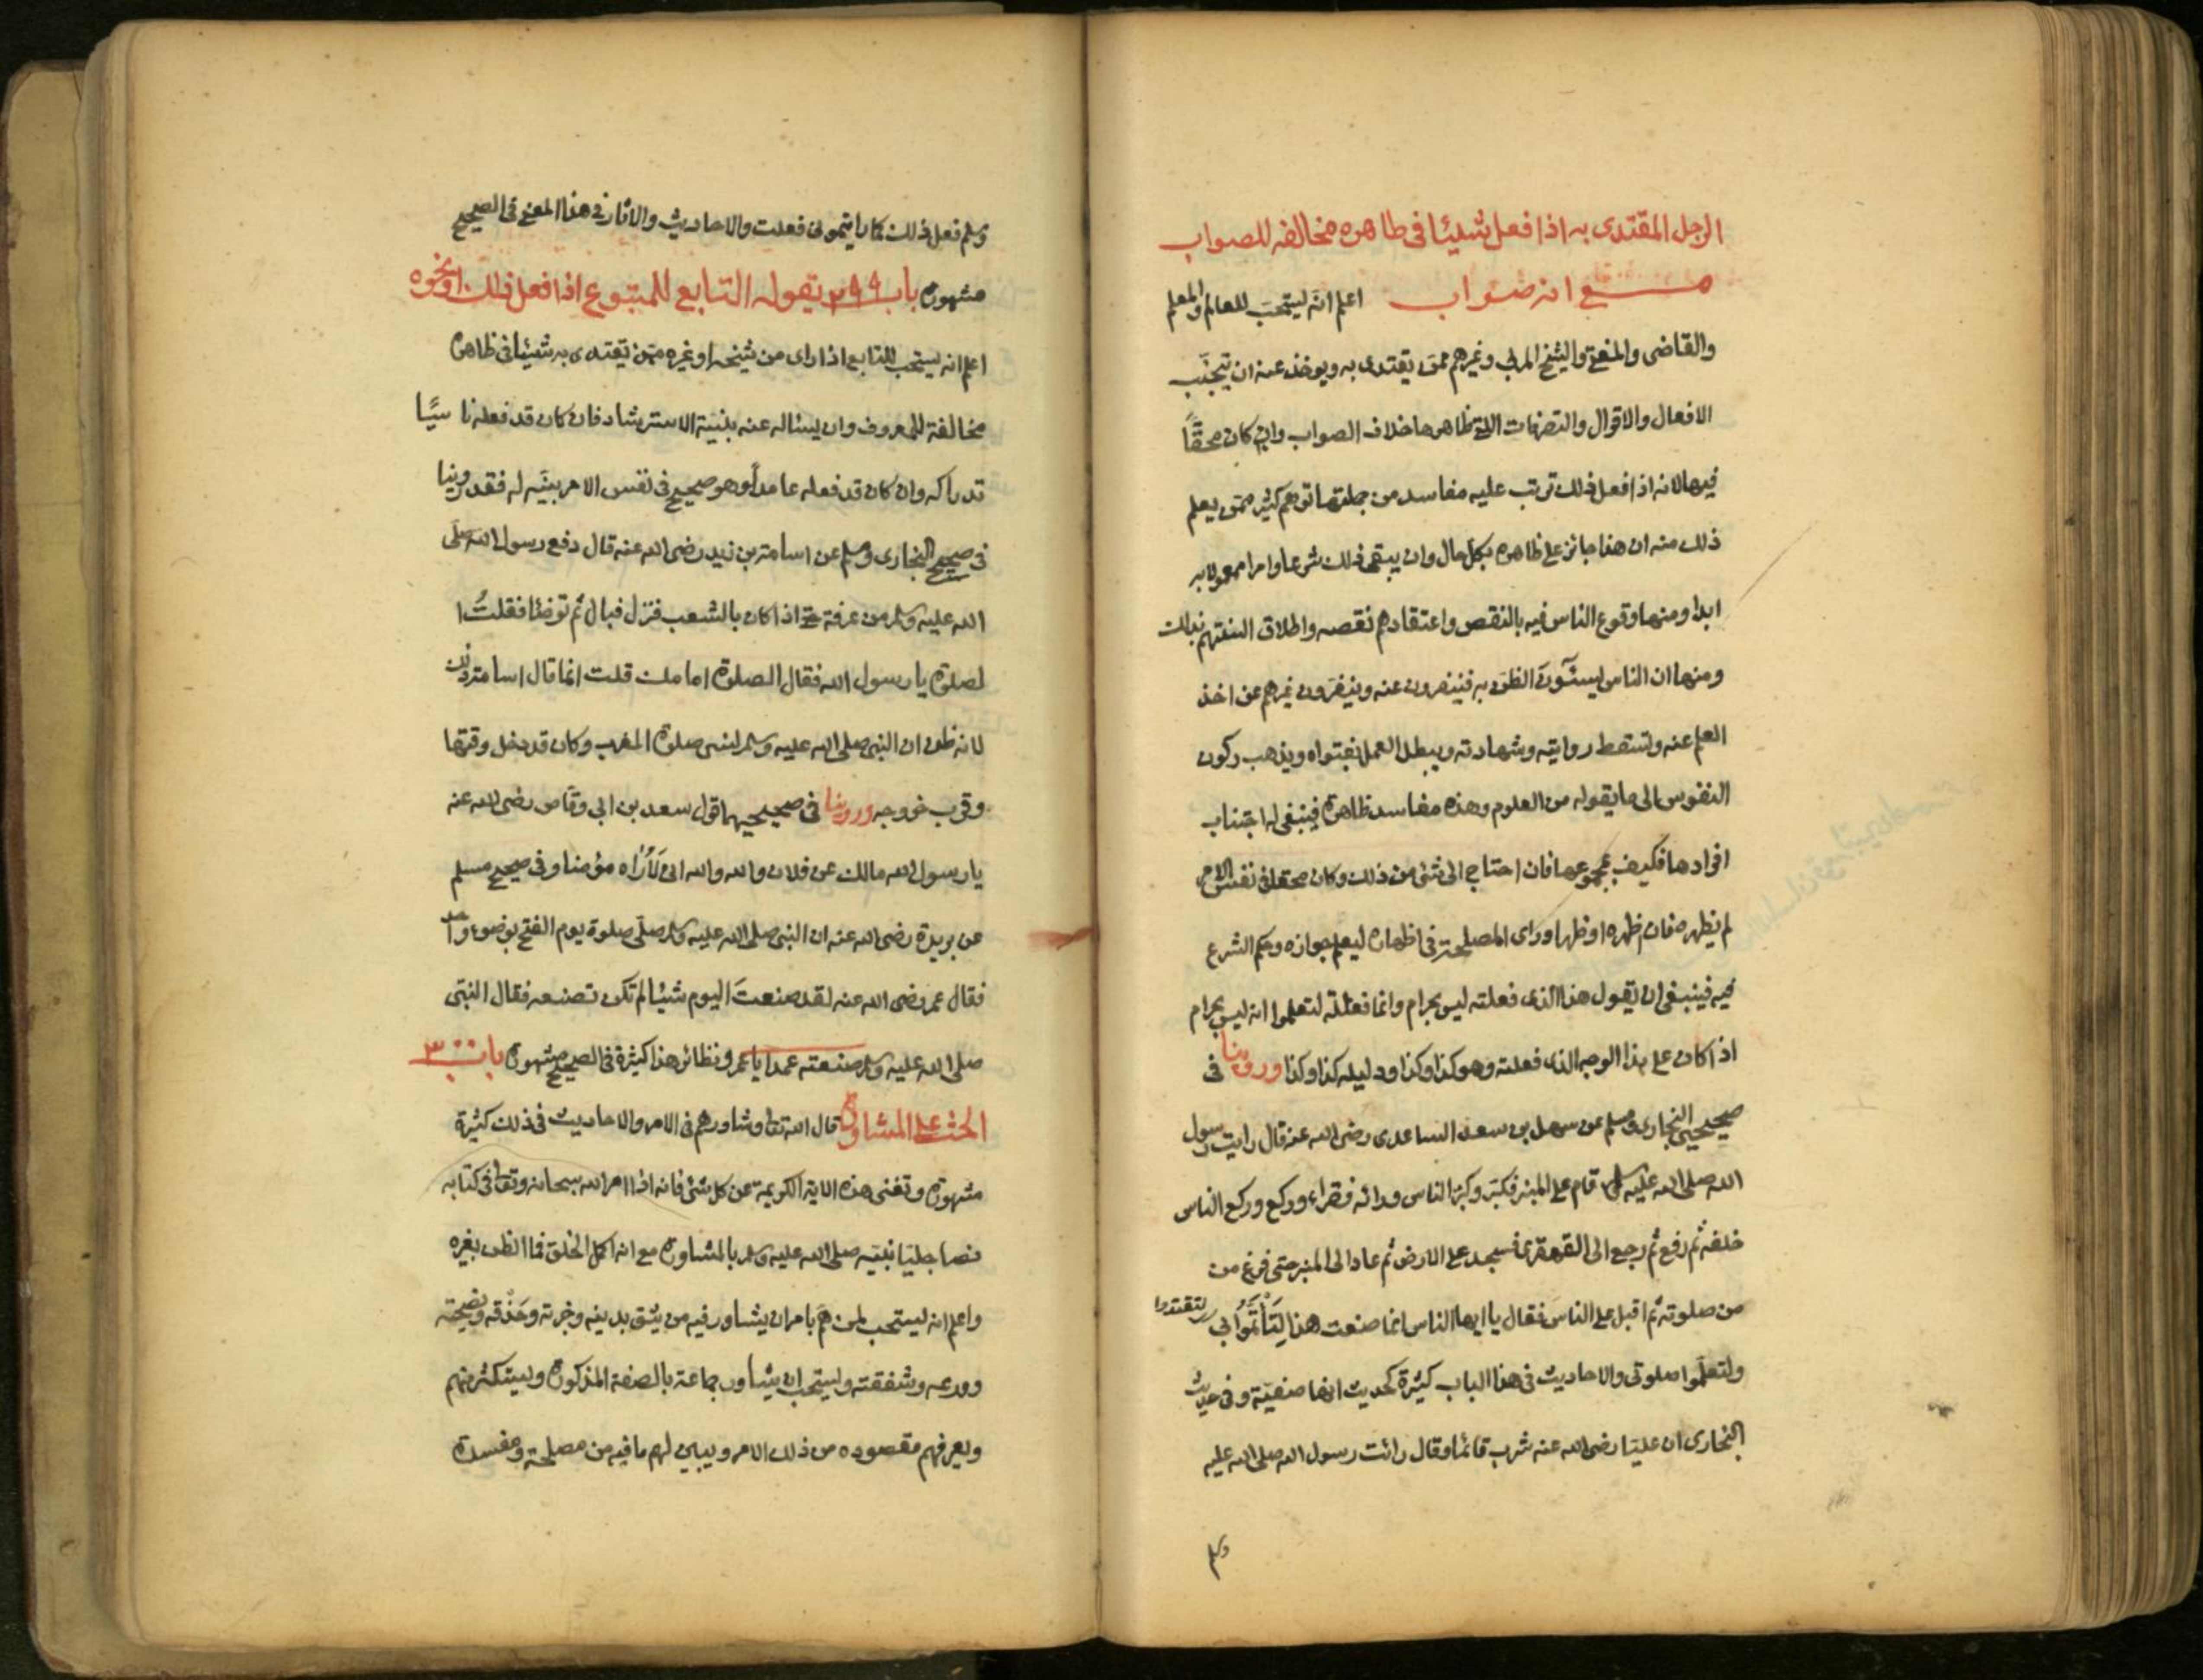 الرجل المقتدى به اذا فعل شيئا فى ظاهره مخالفه للصواب
مع انه صواب اعلم انّه يستحبّ للعالم والمعلم
والقاضى والمفتى والشيخ المربى وغيرهم ممّن يقتدى به ويوخذ عنه ان يتجنّب
الافعال والاقوال والتصرفات التى ظاهرها خلاف الصواب وان كان محقّاً
فيها لانه اذا فعل ذلك ترتب عليه مفاسد من جملتها توهم كثير ممّن يعلم
ذلك منه ان هذا جائز على ظاهره بكل حال وان يبقى ذلك شرعا وامرا معمولا به
ابدا ومنها وقوع الناس فيه بالنقص واعتقادهم نقصه واطلاق السنتهم بذلك
ومنها ان الناس يسيئون الظن به فينفرون عنه وينفّرون غيرهم عن اخذ
العلم عنه وتسقط روايته وشهادته ويبطل العمل بفتواه ويذهب ركون
النفوس الى ما يقوله من العلوم وهذه مفاسد ظاهرة فينبغى له اجتناب
افرادها فكيف بمجموعها فان احتاج الى شئ من ذلك وكان محقا فى نفس الامر
لم يظهره فان ظهره او ظهر او راى المصلحة فى اظهاره ليعلم جوازه وحكم الشرع
فيه فينبغى ان يقول هذا الذى فعلته ليس بحرام وانما فعلته لتعلموا انه ليس بحرام
اذا كان على هذا الوجه الذى فعلته وهو كذا وكذا ودليله كذا وكذا وروينا فى
صحيحى البخارى ومسلم عن سهل بن سعد الساعدى رضى الله عنه قال رايت رسول
الله صلى الله عليه وسلم قام على المنبر فكبّر وكبّر الناس ورائه فقراء وركع وركع الناس
خلفه ثم رفع ثم رجع الى القهقرى فسجد على الارض ثم عاد الى المنبر حتى فرغ من
من صلوته ثم اقبل على الناس فقال يا ايها الناس انما صنعت هذا لِتَأْتَمُّوا بى لتقتدوا
ولتعلّموا صلوتى والاحاديث فى هذا الباب كثيرة كحديث انها صفيّة وفى حديث
البخارى ان عليّا رضى الله عنه شرب قائما وقال رائت رسول الله صلى الله عليه
وسلم
وسلم فعل ذلك كما رايتمونى فعلت والاحاديث والاثار فى هذا المعنى فى الصحيح
مشهورة باب ٢٩٩ يقوله التابع للمتبوع اذا فعل ذلك او نحوه
اعلم انه يستحب للتابع اذا راى من شيخه او غيره ممّن يقتدى به شيئا فى ظاهره
مخالفة للمعروف وان يساله عنه بنيّة الاسترشاد فان كان قد فعله نا سيًا
تدراكه وان كان قد فعله عامداً وهو صحيح فى نفس الامر بيّنه له فقد روينا
فى صحيح البخارى ومسلم عن اسامة بن زيد رضى الله عنه قال دفع رسول الله صلّى
الله عليه وسلم من عرفة حتى اذا كان بالشعب فنزل فبال ثم توضّا فقلتُ ا
لصلوة يا رسول الله فقال الصلوة امامك قلت انما قال اسامة ذلك
لانه ظن ان النبى صلى الله عليه وسلم لنسى صلوة المغرب وكان قد دخل وقتها
وقرب خروجه وروينا فى صحيحيهما قول سعد بن ابى وقّاص رضى الله عنه
يا رسول الله مالك عن فلان والله والله انى لَأُرَاه مؤمنا وفى صحيح مسلم
عن بريدة رضى الله عنه ان النبى صلى الله عليه وسلم صلّى صلوة يوم الفتح بوضوء واحد
فقال عمر رضى الله عنه لقد صنعتَ اليوم شيئا لم تكن تصنعه فقال النبّى
صلى الله عليه وسلم صنعته عمدا يا عمر ونظائر هذا كثيرة فى الصحيح مشهورة باب ٣٠٠
الحث على المشاورة قال الله تعا وشاورهم فى الامر والاحاديث فى ذلك كثيرة
مشهورة وتغنى هذه الاية الكريمة عن كل شئ فانه اذا امر الله سبحانه وتعا فى كتابه
نصا جليّا نبيّه صلى الله عليه وسلم بالمشاورة مع انه اكمل الخلق فما الظن بغيره
واعلم انه ليستحب لمن همّ بامر ان يشاور فيه من يثق بدينه وخبرته وحَذْقه ونصيحته
وورعه وشفقته وليستحب ان يشاور جماعة بالصفة المذكورة وليستكثر منهم
ويعرفهم مقصوده من ذلك الامر ويبيّن لهم ما فيه من مصلحة ومفسدة